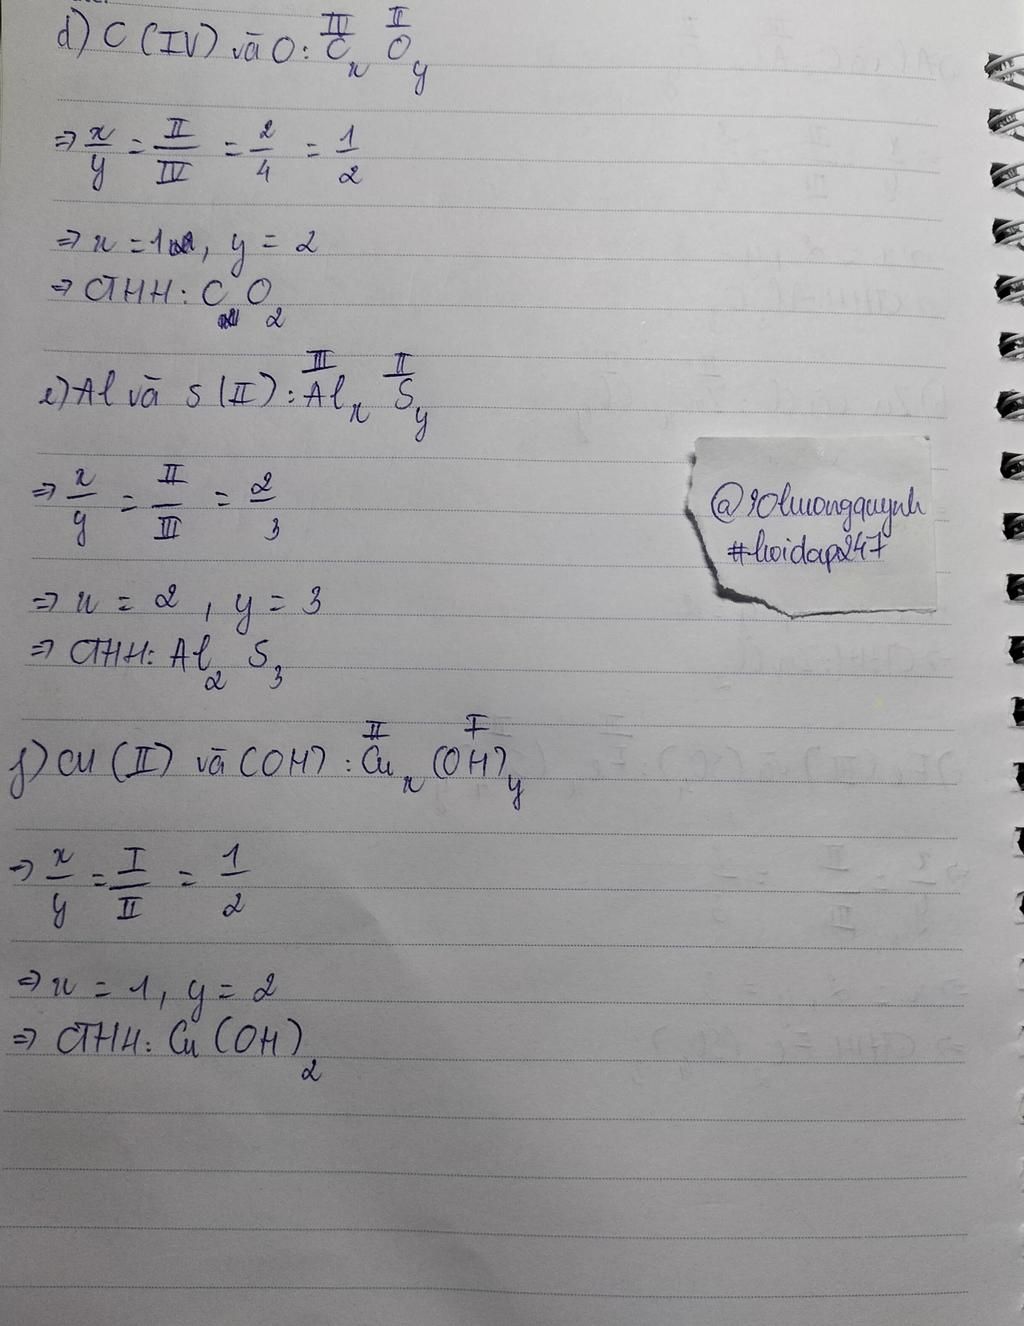 d) C (IV) và O: IV II
C x O y
=> x/y = II/IV = 2/4 = 1/2
=> x = 1, y = 2
=> CTHH: C O 2
e) Al và S (II): III II
Al x S y
=> x/y = II/III = 2/3
=> x = 2, y = 3
=> CTHH: Al 2 S 3
@90luongquynh
#hoidap247
f) Cu (II) và (OH): II I
Cu x (OH) y
=> x/y = I/II = 1/2
=> x = 1, y = 2
=> CTHH: Cu (OH) 2